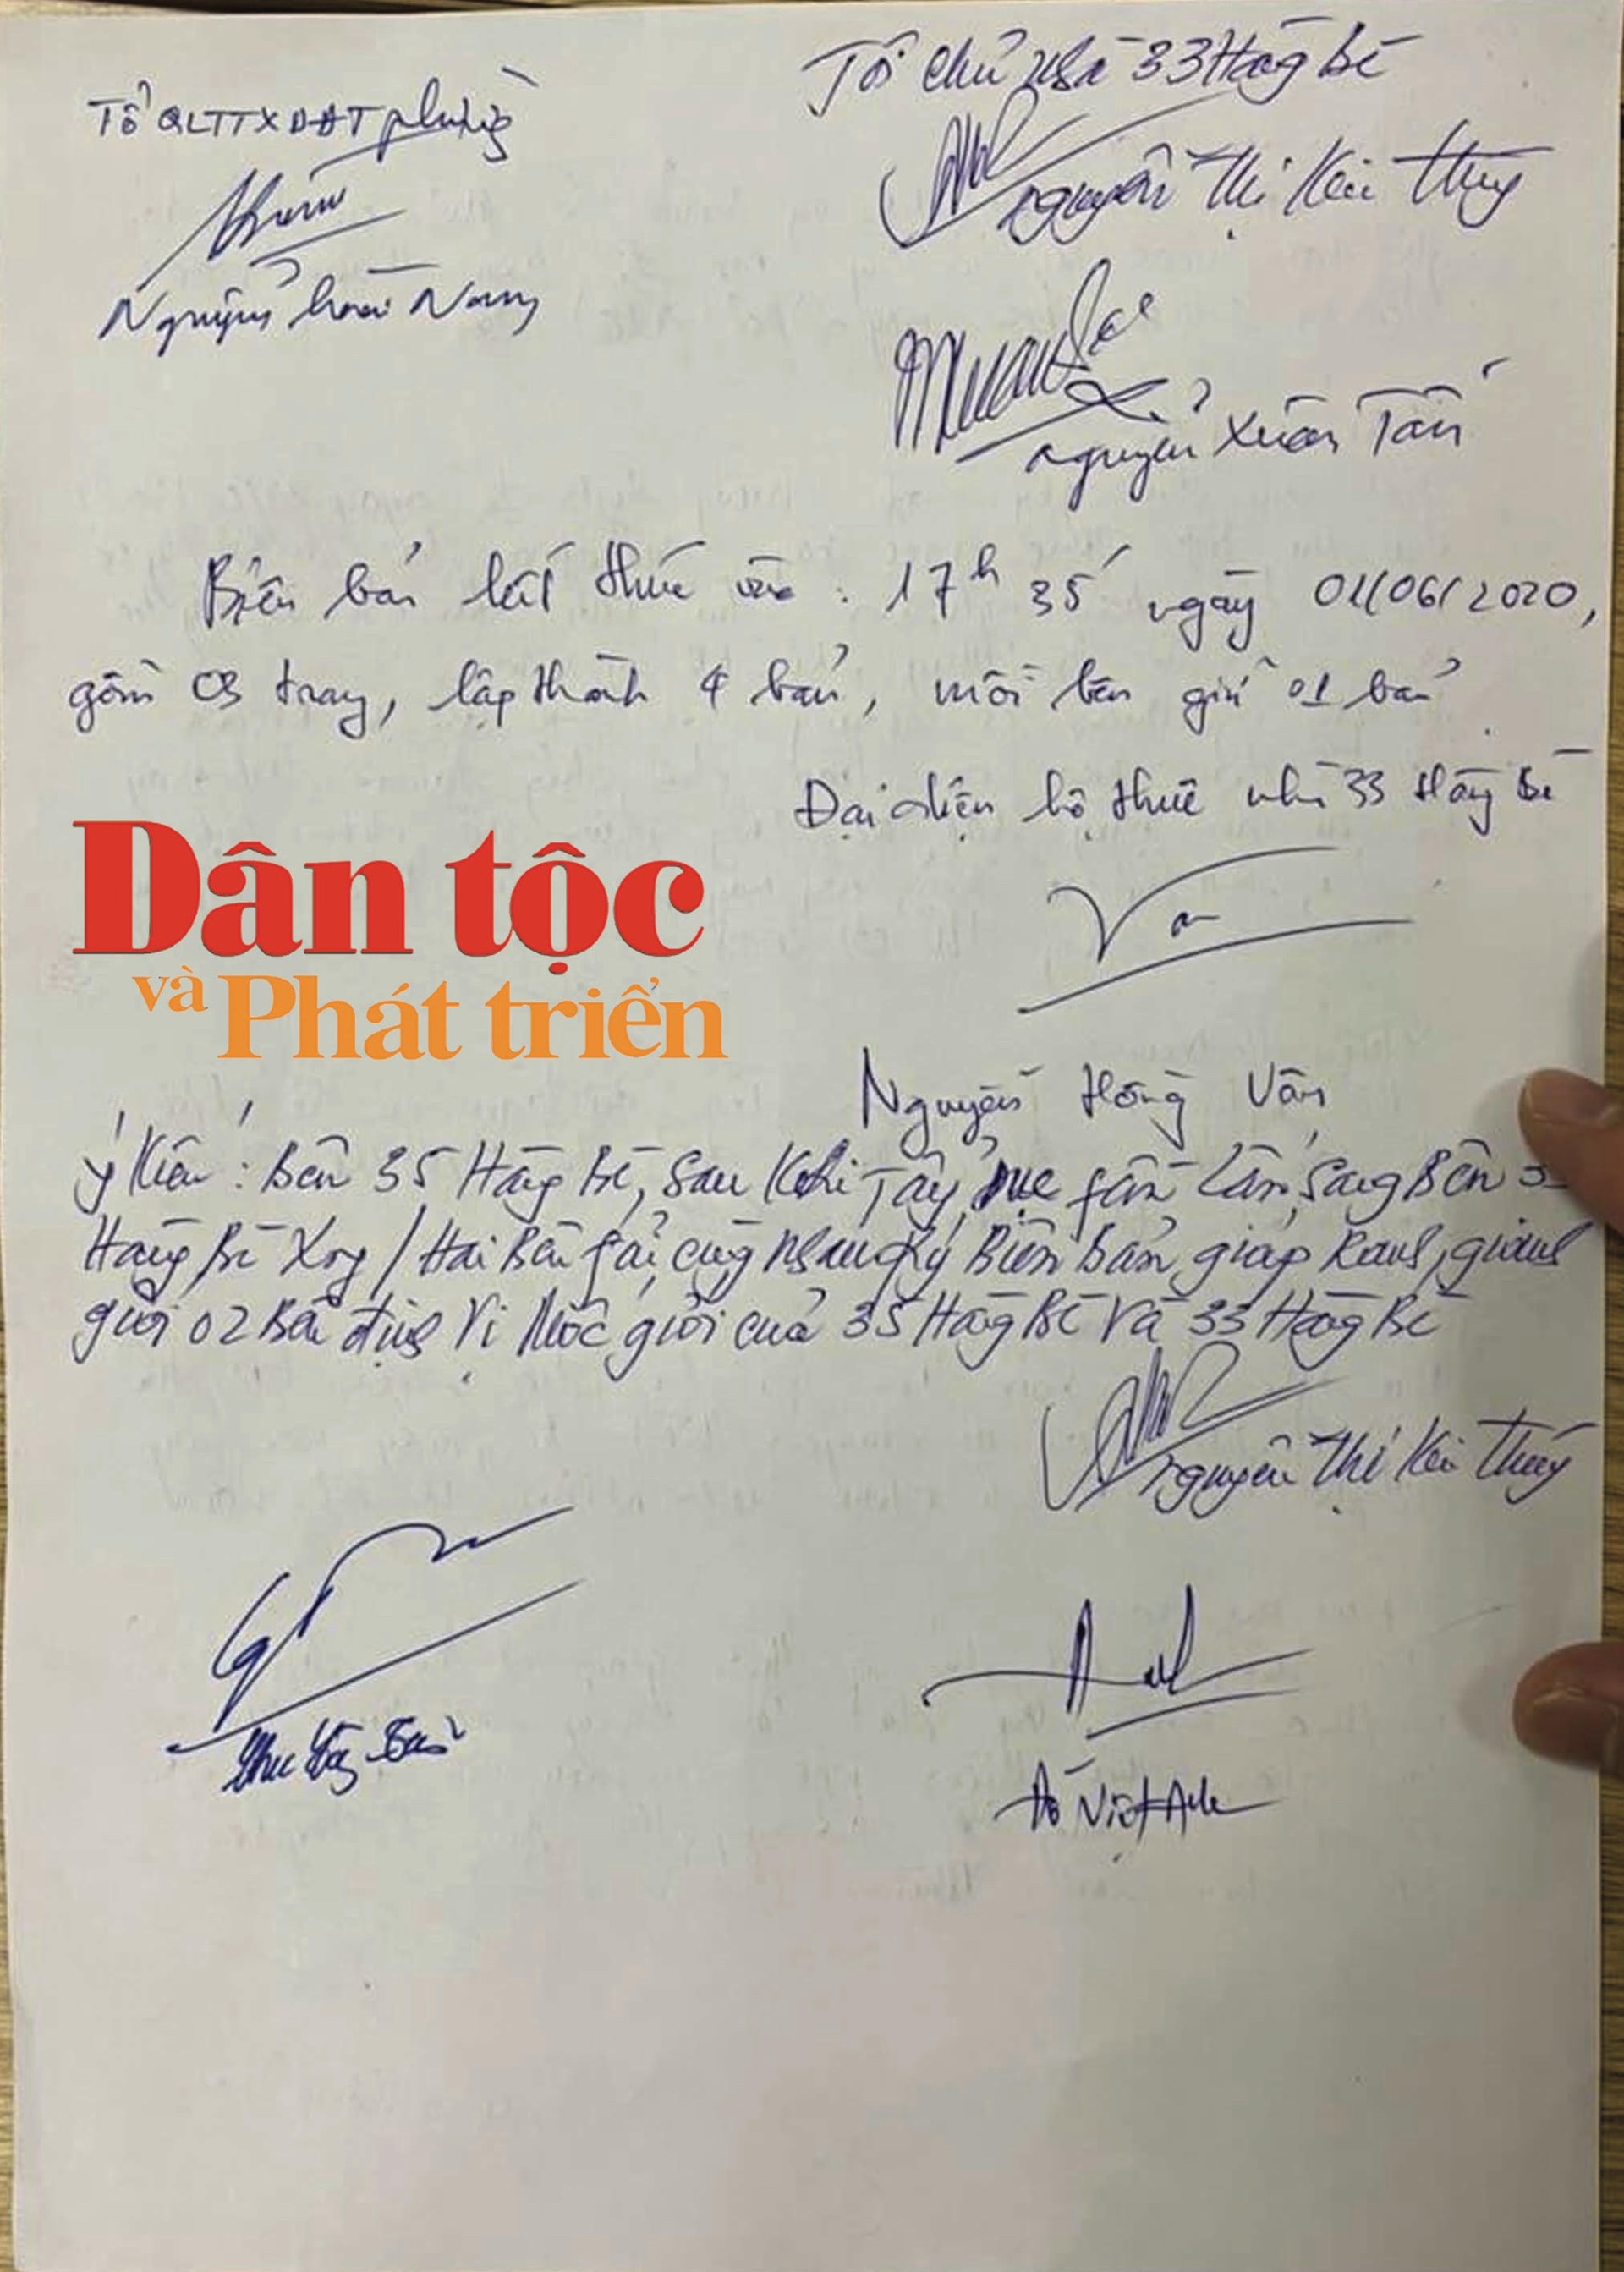 Tổ QLTTXDĐT phường
Nguyễn Hoài Nam
Tôi chủ nhà 33 Hàng Bè
Nguyễn Thị Kim Thuý
Nguyễn Xuân Tấn
Biên bản kết thúc vào : 17h 35' ngày 01/06/2020,
gồm 03 trang, lập thành 4 bản, mỗi bên giữ 01 bản
Đại diện hộ thuê nhà 33 Hàng Bè
Dân tộc
và Phát triển
Nguyễn Hồng Vân
Ý Kiến : Bên 35 Hàng Bè, Sau Khi Tẩy, Đục phần Lấn Sang Bên 33
Hàng Bè Xong / Hai Bên phải cùng nhau Ký Biên Bản giáp Ranh, giành
giới 02 Bên đúng Vị Mốc giới của 35 Hàng Bè Và 33 Hàng Bè
Nguyễn Thị Kim Thuý
Đỗ Việt Anh